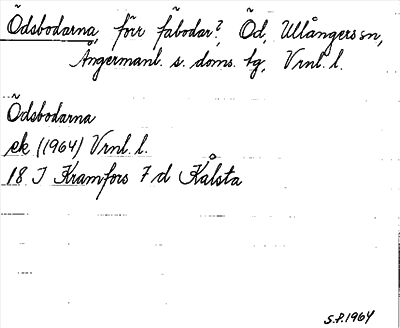 Ödsbodarna, förr fäbodar? Öd, Ullångers sn,
Ångermanl. s. doms. tg, Vrnl. l.
Ödsbodarna
ek (1964) Vrnl. l.
18 J Kramfors 7 d Kålsta
S.P. 1964